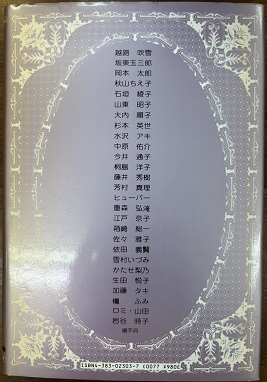 越路 吹雪
坂東玉三郎
岡本 太郎
秋山ちえ子
石垣 綾子
山東 昭子
大内 順子
杉本 英世
水沢 アキ
中原 佑介
今井 通子
桐島 洋子
藤井 秀樹
芳村 真理
ヒューバー
重森 弘淹
江戸 京子
箱崎 総一
佐々 雅子
依田 義賢
雪村いづみ
かたせ梨乃
生田 悦子
加藤 タキ
檀 ふみ
ロミ・山田
岩谷 時子
順不同
ISBN4-383-02303-7 C0077 ¥980E